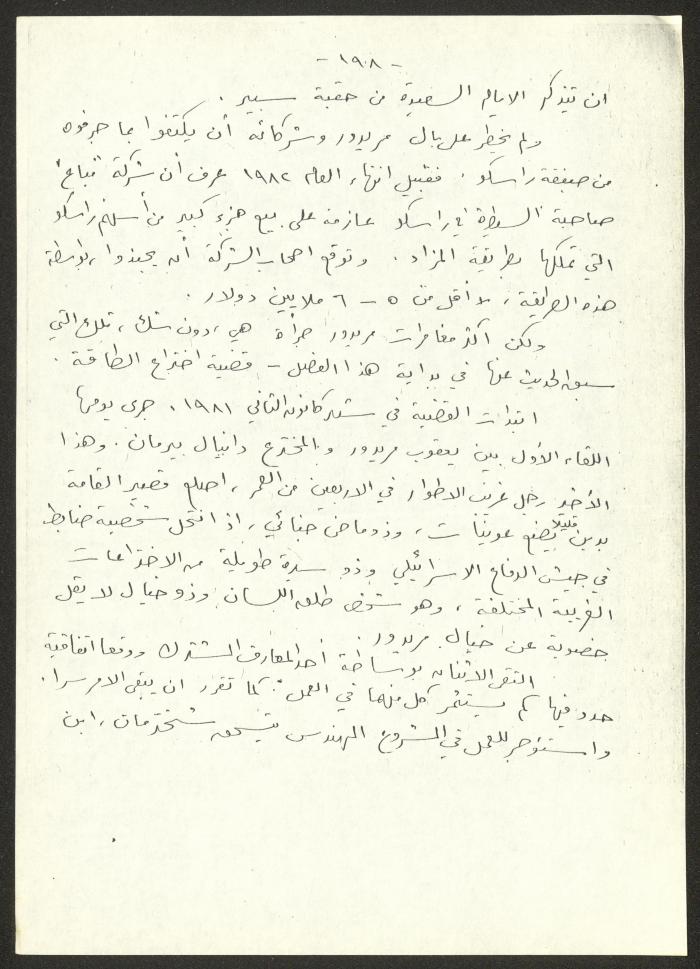 - ١٩٨ -
ان تتذكر الايام السعيدة من حقبة سبير .
ولم يخطر على بال مريدور وشركائه أن يكتفوا بما جرفوه
من صفقة راسكو . فقبيل انتهاء العام ١٩٨٢ عرف أن شركة "
صاحبة السيطرة في راسكو عازمة على بيع جزء كبير من أسهم راسكو
التي تملكها بطريقة المزاد . وتوقع اصحاب الشركة أن يجنوا ، بواسطة
هذه الطريقة ، لا أقل من ٥ - ٦ ملايين دولار .
ولكن أكثر مغامرات مريدور جرأة هي ، دون شك ، تلك التي
سبق الحديث عنها في بداية هذا الفصل - قضية اختراع الطاقة .
ابتدأت القضية في شهر كانون الثاني ١٩٨١ . جرى يومها
اللقاء الأول بين يعقوب مريدور والمخترع دانيال بيرمان . وهذا
الأخير رجل غريب الاطوار في الاربعين من العمر ، اصلع قصير القامة
بدين قليلا يضع عوينات ، وذو ماض جنائي ، اذ انتحل شخصية ضابط
في جيش الدفاع الاسرائيلي وذو سيرة طويلة من الاختراعات
الغريبة المختلفة ، وهو شخص طلق اللسان وذو خيال لا يقل
خصوبة عن خيال مريدور .
التقى الاثنان بوساطة أحد المعارف المشترك ووقعا اتفاقية
حدد فيها كم يستثمر كل منهما في العمل . كما تقرر ان يبقى الامر سرا .
واستؤجر للعمل في المشروع المهندس يتسحق ، ابن